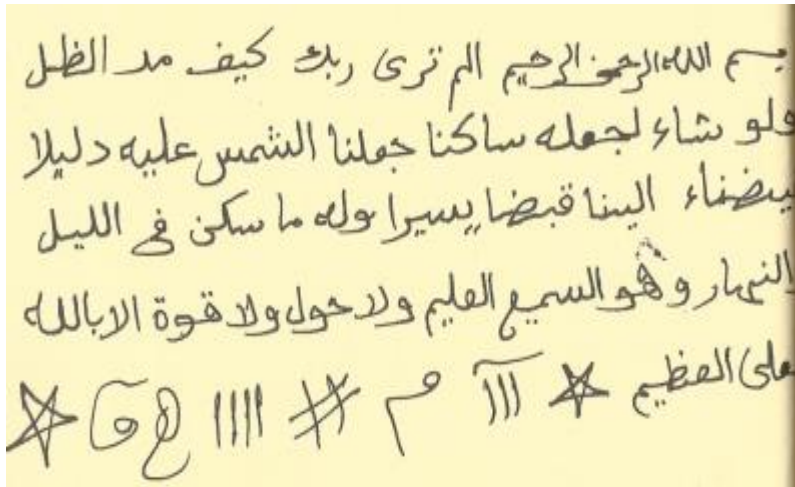 بسم الله الرحمن الرحيم الم ترى ربك كيف مد الظل
ولو شاء لجعله ساكنا جعلنا الشمس عليه دليلا
الينا قبضا يسيرا وله ما سكن في الليل
النهار وهو السميع العليم ولا حول ولا قوة الا بالله
على العظيم